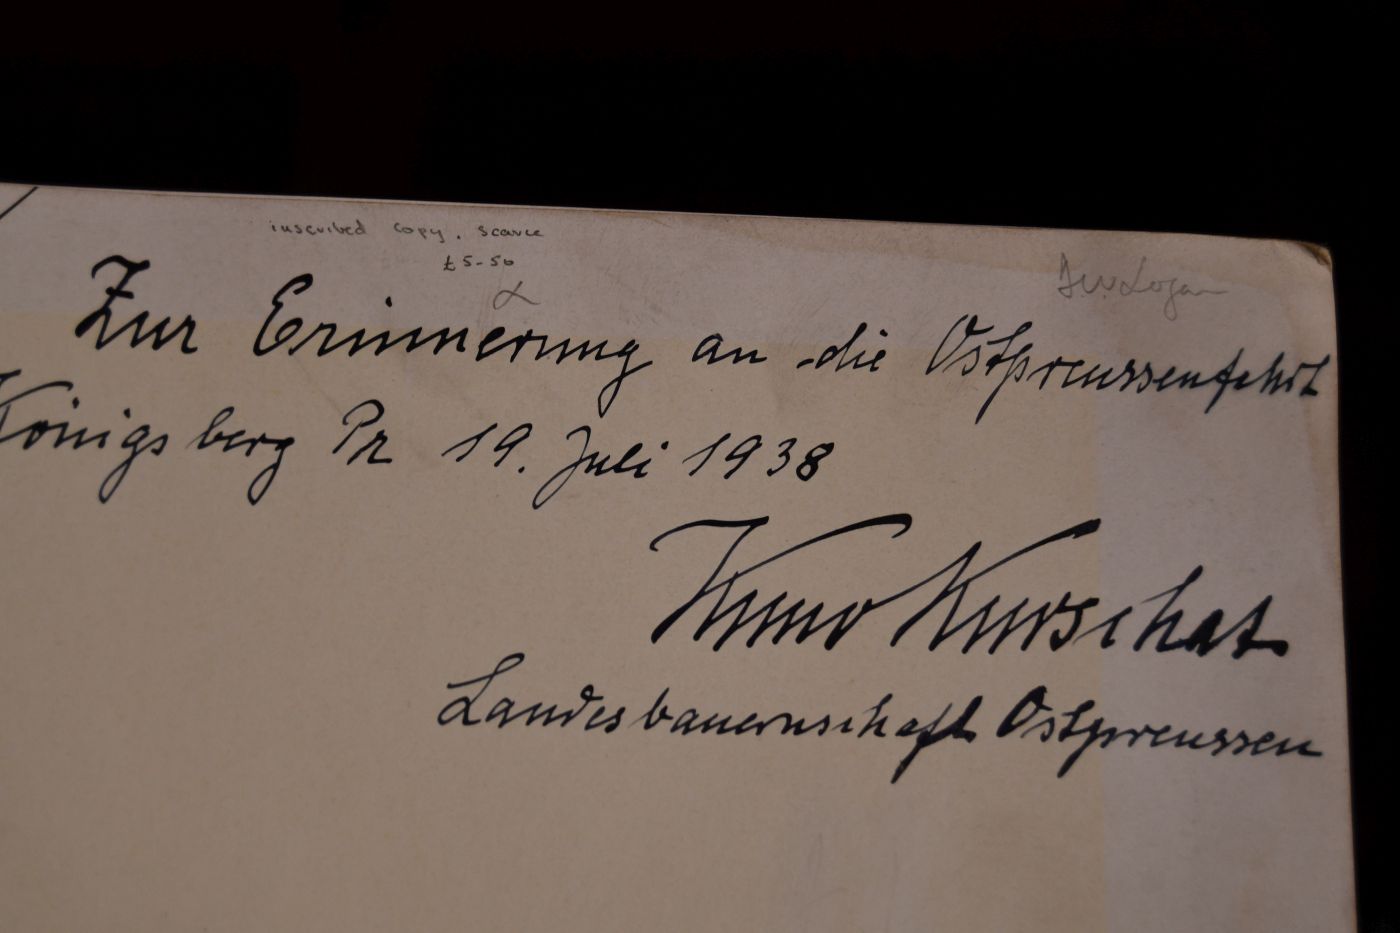 inscribed copy. scarce
£5-50
Zur Erinnerung an die Ostpreussenfahrt
Königsberg Pr 19. Juli 1938
Kuno Kurschat
Landesbauernschaft Ostpreussen